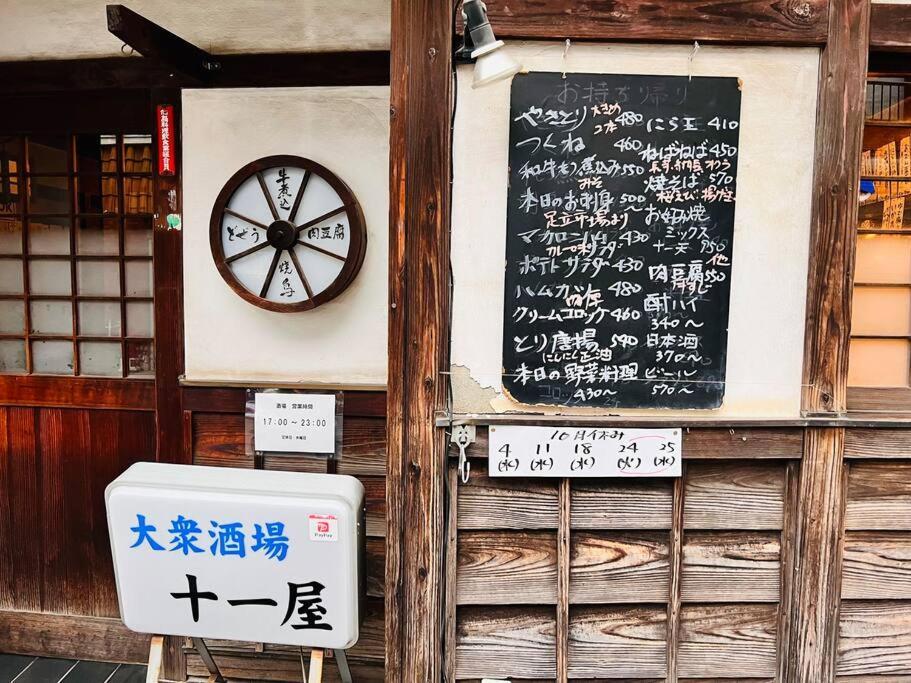 牛煮込
どぜう
肉豆腐
焼魚
酒場 営業時間
17:00 ～ 23:00
定休日:水曜日
大衆酒場
PayPay
十一屋
お持ち帰り
やきとり 大きめ 2本 480
つくね 460
和牛もつ煮込み 550
みそ
本日のお刺身 500～
足立市場より
マカロニサラダ 430
カレーポテトサラダ
ポテトサラダ 430
ハムカツ 480
クリームコロッケ 460
とり唐揚 590
にんにく正油
本日の野菜料理
430～
にら玉 410
ねばねば 450
焼そば 570
桜えび、揚げ玉
お好み焼
ミックス
十一天 950
肉豆腐 550
酎ハイ
340～
日本酒
370～
ビール
570～
10月休み
4 11 18 24 25
(水) (水) (水) (火) (水)